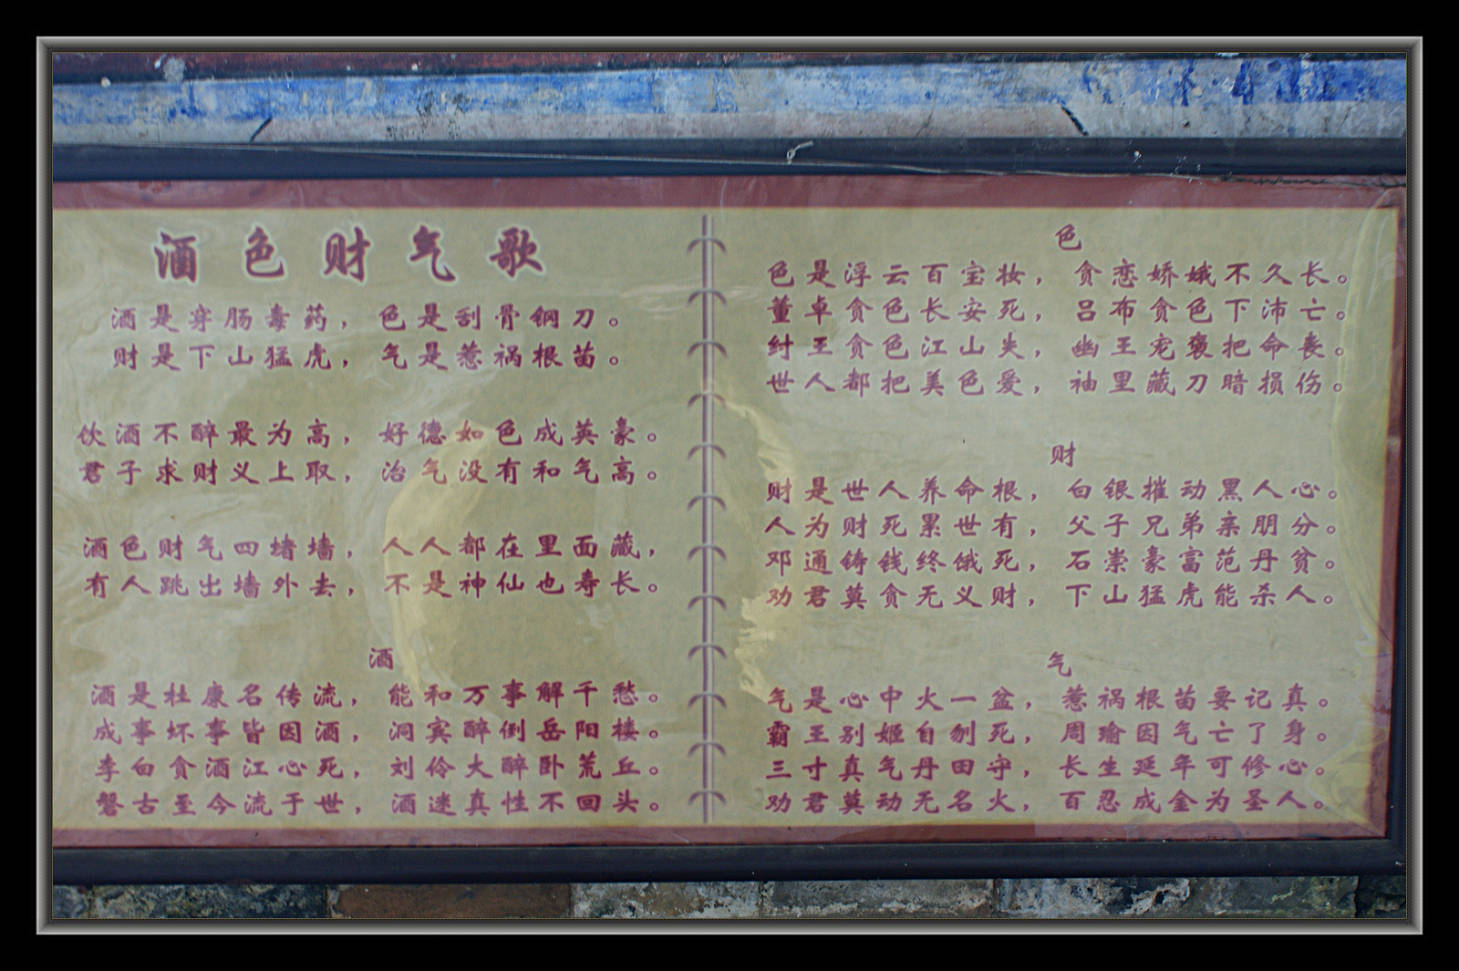 酒色财气歌
酒是穿肠毒药，色是刮骨钢刀。
财是下山猛虎，气是惹祸根苗。
饮酒不醉最为高，好德如色成英豪。
君子求财义上取，治气没有和气高。
酒色财气四堵墙，人人都在里面藏，
有人跳出墙外去，不是神仙也寿长。
酒
酒是杜康名传流，能和万事解千愁。
成事坏事皆因酒，洞宾醉倒岳阳楼。
李白贪酒江心死，刘伶大醉卧荒丘。
磐古至今流于世，酒迷真性不回头。
色
色是浮云百宝妆，贪恋娇娥不久长。
董卓贪色长安死，吕布贪色下沛亡。
纣王贪色江山失，幽王宠褒把命丧。
世人都把美色爱，袖里藏刀暗损伤。
财
财是世人养命根，白银摧动黑人心。
人为财死累世有，父子兄弟亲朋分。
邓通铸钱终饿死，石崇豪富范丹贫。
劝君莫贪无义财，下山猛虎能杀人。
气
气是心中火一盆，惹祸根苗要记真。
霸王别姬自刎死，周瑜因气亡了身。
三寸真气丹田守，长生延年可修心。
劝君莫动无名火，百忍成金为圣人。